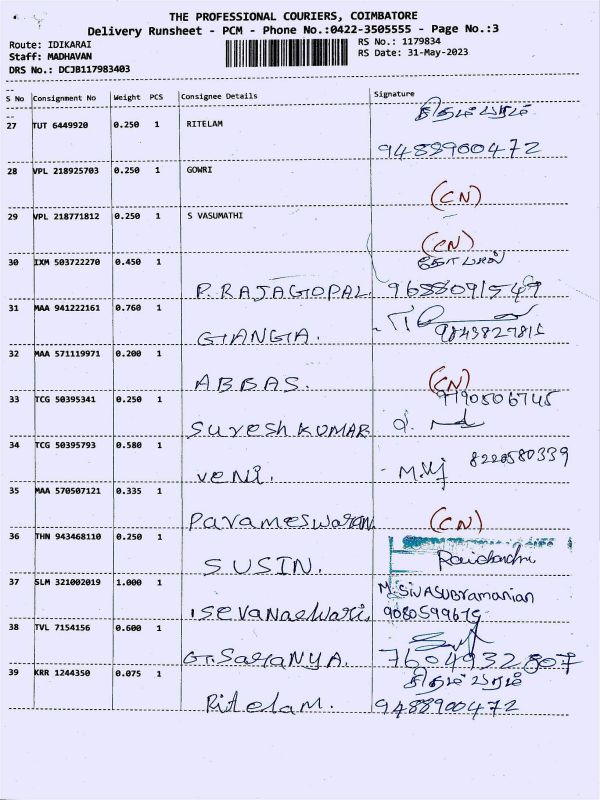 THE PROFESSIONAL COURIERS, COIMBATORE
Delivery Runsheet - PCM - Phone No.:0422-3505555 - Page No.:3
Route: IDIKARAI RS No.: 1179834
Staff: MADHAVAN RS Date: 31-May-2023
DRS No.: DCJB117983403
S No Consignment No Weight PCS Consignee Details Signature
27 TUT 6449920 0.250 1 RITELAM சிதம்பரம்
9488900472
28 VPL 218925703 0.250 1 GOWRI
(CN)
29 VPL 218771812 0.250 1 S VASUMATHI
(CN)
30 IXM 503722270 0.450 1
P. RAJAGOPAL
31 MAA 941222161 0.760 1
GANGA. 9843827815
32 MAA 571119971 0.200 1
ABBAS. (CN)
33 TCG 50395341 0.250 1
Suresh KUMAR
34 TCG 50395793 0.580 1 8220580339
veni.
35 MAA 570507121 0.335 1
Parameswaran (CN)
36 THN 943468110 0.250 1
SUSIN.
37 SLM 321002019 1.000 1 M. SIVASUBramanian
9080599675
38 TVL 7154156 0.600 1
G. SaranYA. 7604932807
39 KRR 1244350 0.075 1 சிதம்பரம்
Ritelam. 9488900472